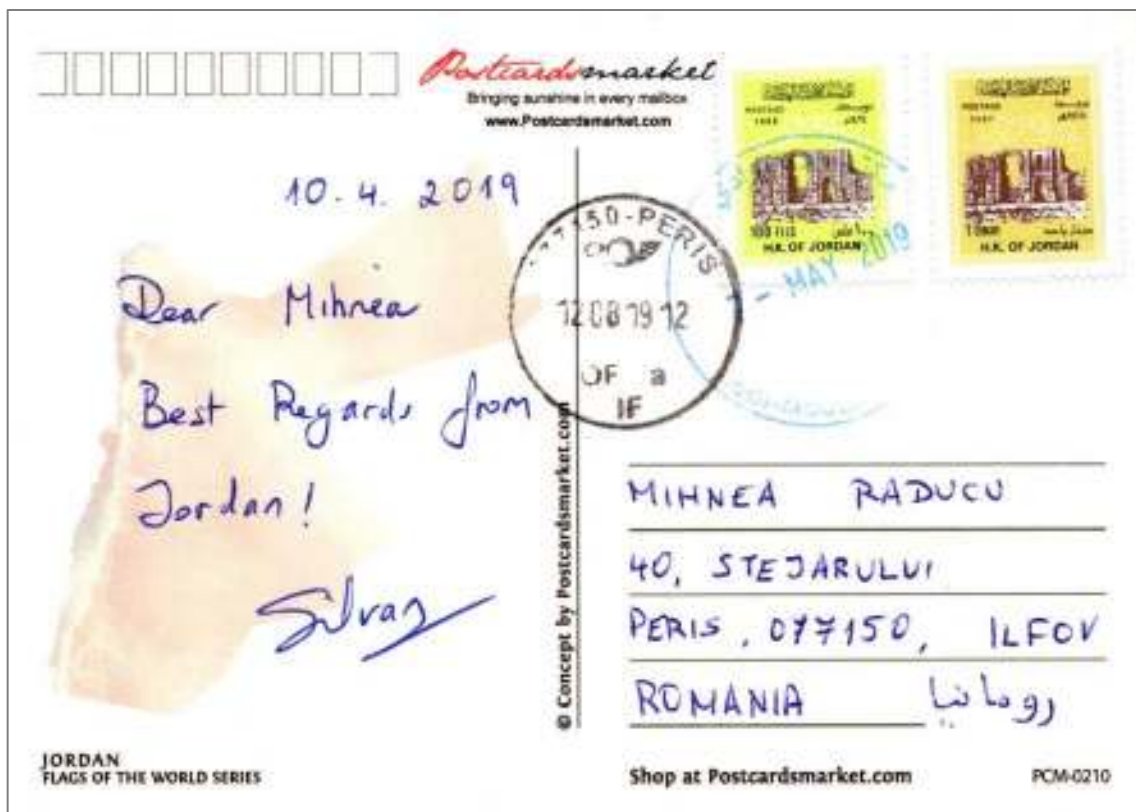 Postcardsmarket
Bringing sunshine in every mailbox
www.Postcardsmarket.com
POSTAGE
POSTAGE
100 FILS
H.K. OF JORDAN
H.K. OF JORDAN
MAY 2019
77150-PERIS
12 08 19 12
OF a
IF
10.4. 2019
Dear Mihnea
Best Regards from
Jordan!
Silvan
© Concept by Postcardsmarket.com
MIHNEA RADUCU
40, STEJARULUI
PERIS, 077150, ILFOV
ROMANIA رومانيا
JORDAN
FLAGS OF THE WORLD SERIES
Shop at Postcardsmarket.com
PCM-0210